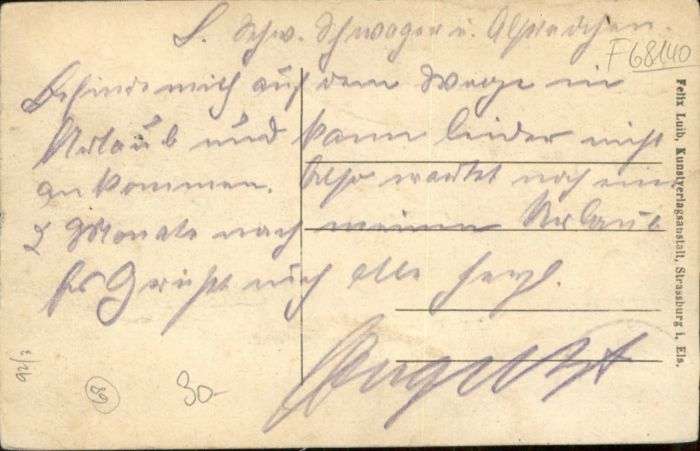 L. Schw. Schwager u. Alfredchen.
Befinde mich auf dem Wege in
Urlaub und kann leider nicht
ankommen. Also wartet noch ein
2 Monate nach meinem Urlaub
Es Grüßt euch alle herzl.
F68140
Felix Luib, Kunstverlagsanstalt, Strassburg i. Els.
30-